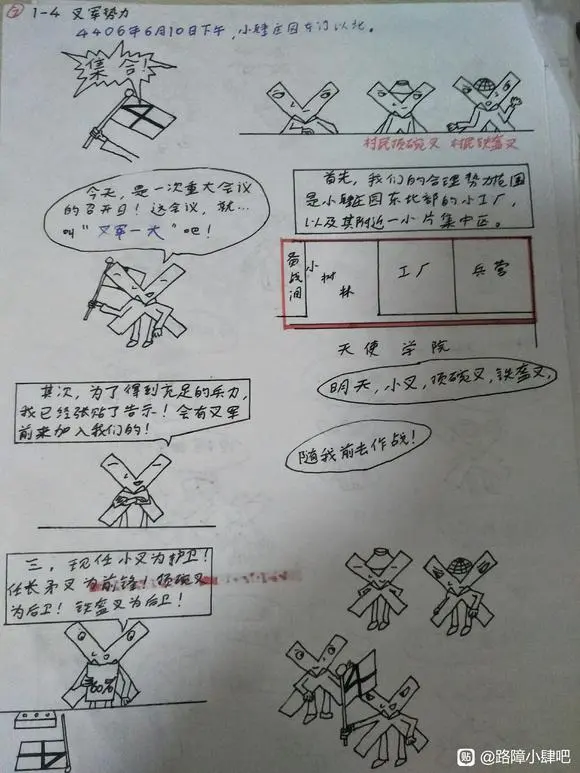 ② 1-4 叉军势力
4406年6月10日下午，小肆庄园东门以北。
集合！
村民顶碗叉 村民铁盔叉
今天，是一次重大会议
的召开日！这会议，就…
叫“叉军一大”吧！
首先，我们的合理势力范围
是小肆庄园东北部的小工厂，
以及其附近一小片集中区。
备战间
小树林
工厂
兵营
天使学院
其次，为了得到充足的兵力，
我已经张贴了告示！会有叉军
前来加入我们的！
明天，小叉，顶碗叉，铁盔叉，
随我前去作战！
三，现任小叉为护卫！
任长矛叉为前锋！顶碗叉
为后卫！铁盔叉为后卫！
60%
贴 @路障小肆吧